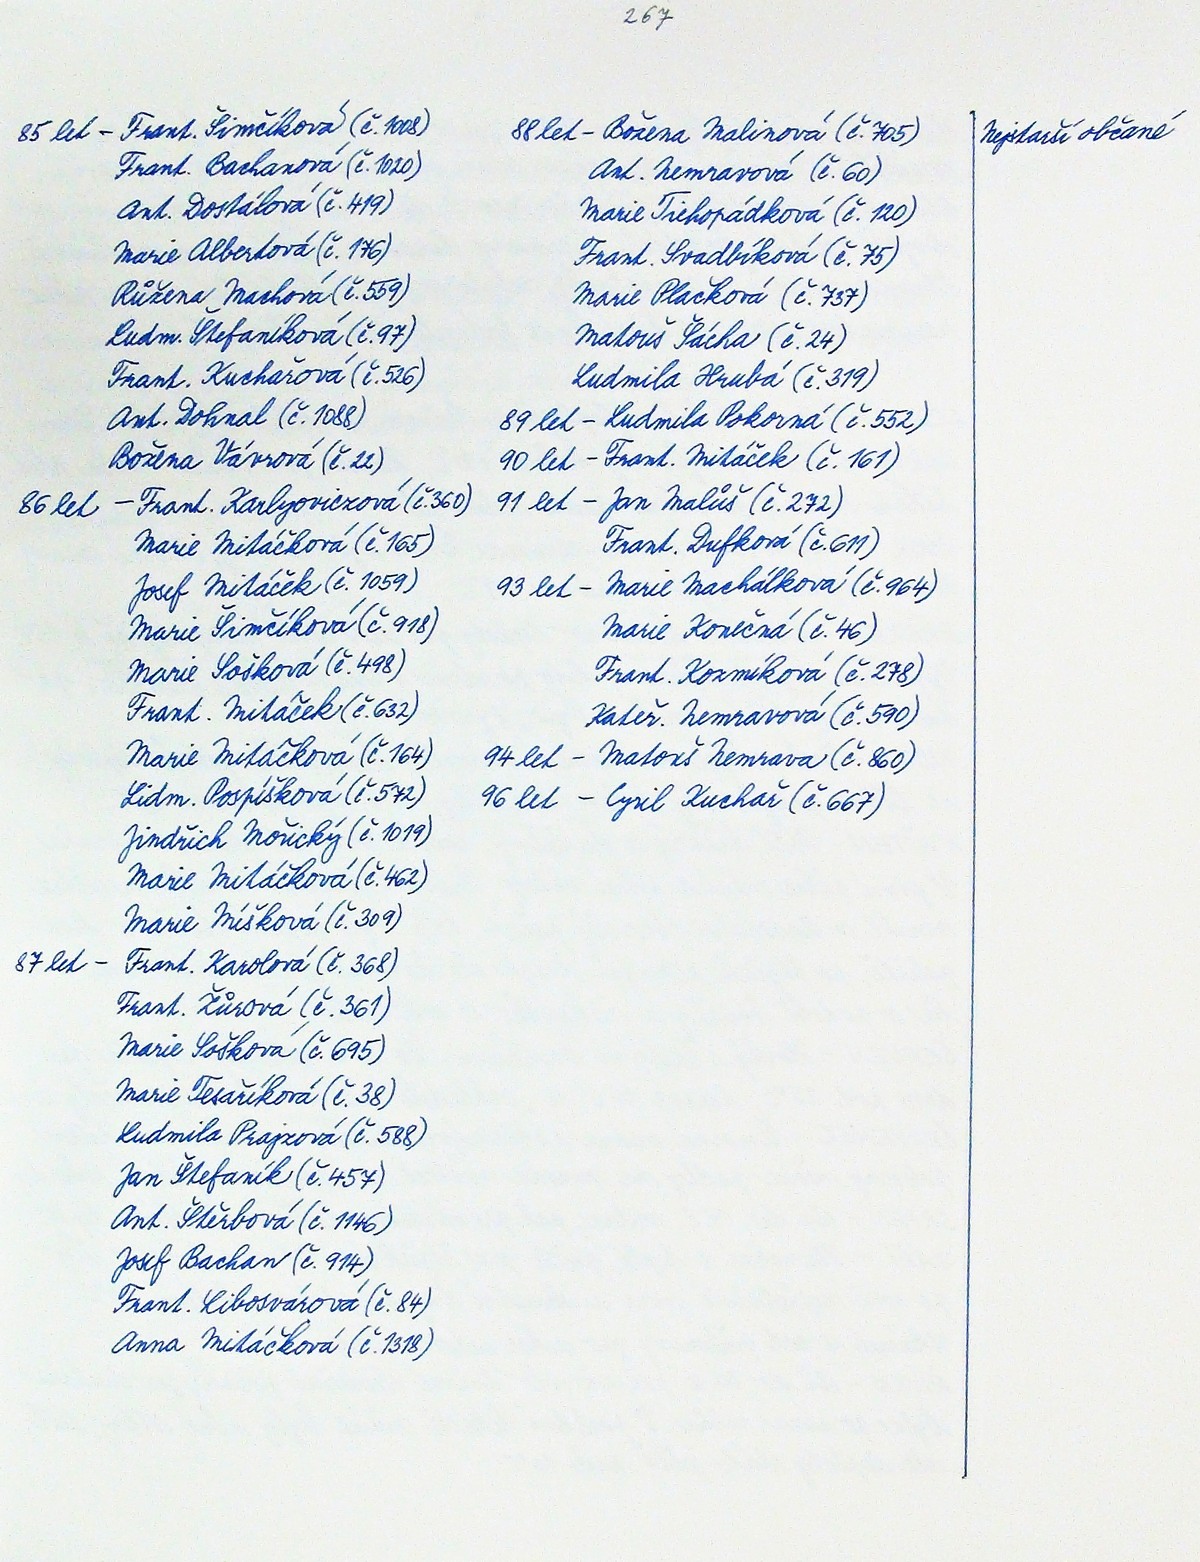 267
85 let – Frant. Šimčíková (č. 1008)
Frant. Bachanová (č. 1020)
Ant. Dostálová (č. 419)
Marie Albertová (č. 176)
Růžena Machová (č. 559)
Ludm. Štefaníková (č. 97)
Frant. Kuchařová (č. 526)
Ant. Dohnal (č. 1088)
Božena Vávrová (č. 22)
86 let – Frant. Karlyoviczová (č. 360)
Marie Mitáčková (č. 165)
Josef Mitáček (č. 1059)
Marie Šimčíková (č. 918)
Marie Sošková (č. 498)
Frant. Mitáček (č. 632)
Marie Mitáčková (č. 164)
Lidm. Pospíšková (č. 572)
Jindřich Mořický (č. 1019)
Marie Mitáčková (č. 462)
Marie Míšková (č. 309)
87 let – Frant. Karolová (č. 368)
Frant. Žůrová (č. 361)
Marie Sošková (č. 695)
Marie Tesaříková (č. 38)
Ludmila Prajzová (č. 588)
Jan Štefaník (č. 457)
Ant. Štěrbová (č. 1146)
Josef Bachan (č. 914)
Frant. Libosvárová (č. 84)
Anna Mitáčková (č. 1318)
88 let – Božena Malinová (č. 705)
Ant. Nemravová (č. 60)
Marie Tichopádková (č. 120)
Frant. Svadbíková (č. 75)
Marie Plačková (č. 737)
Matouš Šácha (č. 24)
Ludmila Hrubá (č. 319)
89 let – Ludmila Pokorná (č. 552)
90 let – Frant. Mitáček (č. 161)
91 let – Jan Malůš (č. 272)
Frant. Dufková (č. 611)
93 let – Marie Machálková (č. 964)
Marie Konečná (č. 46)
Frant. Kozmíková (č. 278)
Kateř. Nemravová (č. 590)
94 let – Matouš Nemrava (č. 860)
96 let – Cyril Kuchař (č. 667)
Nejstarší občané